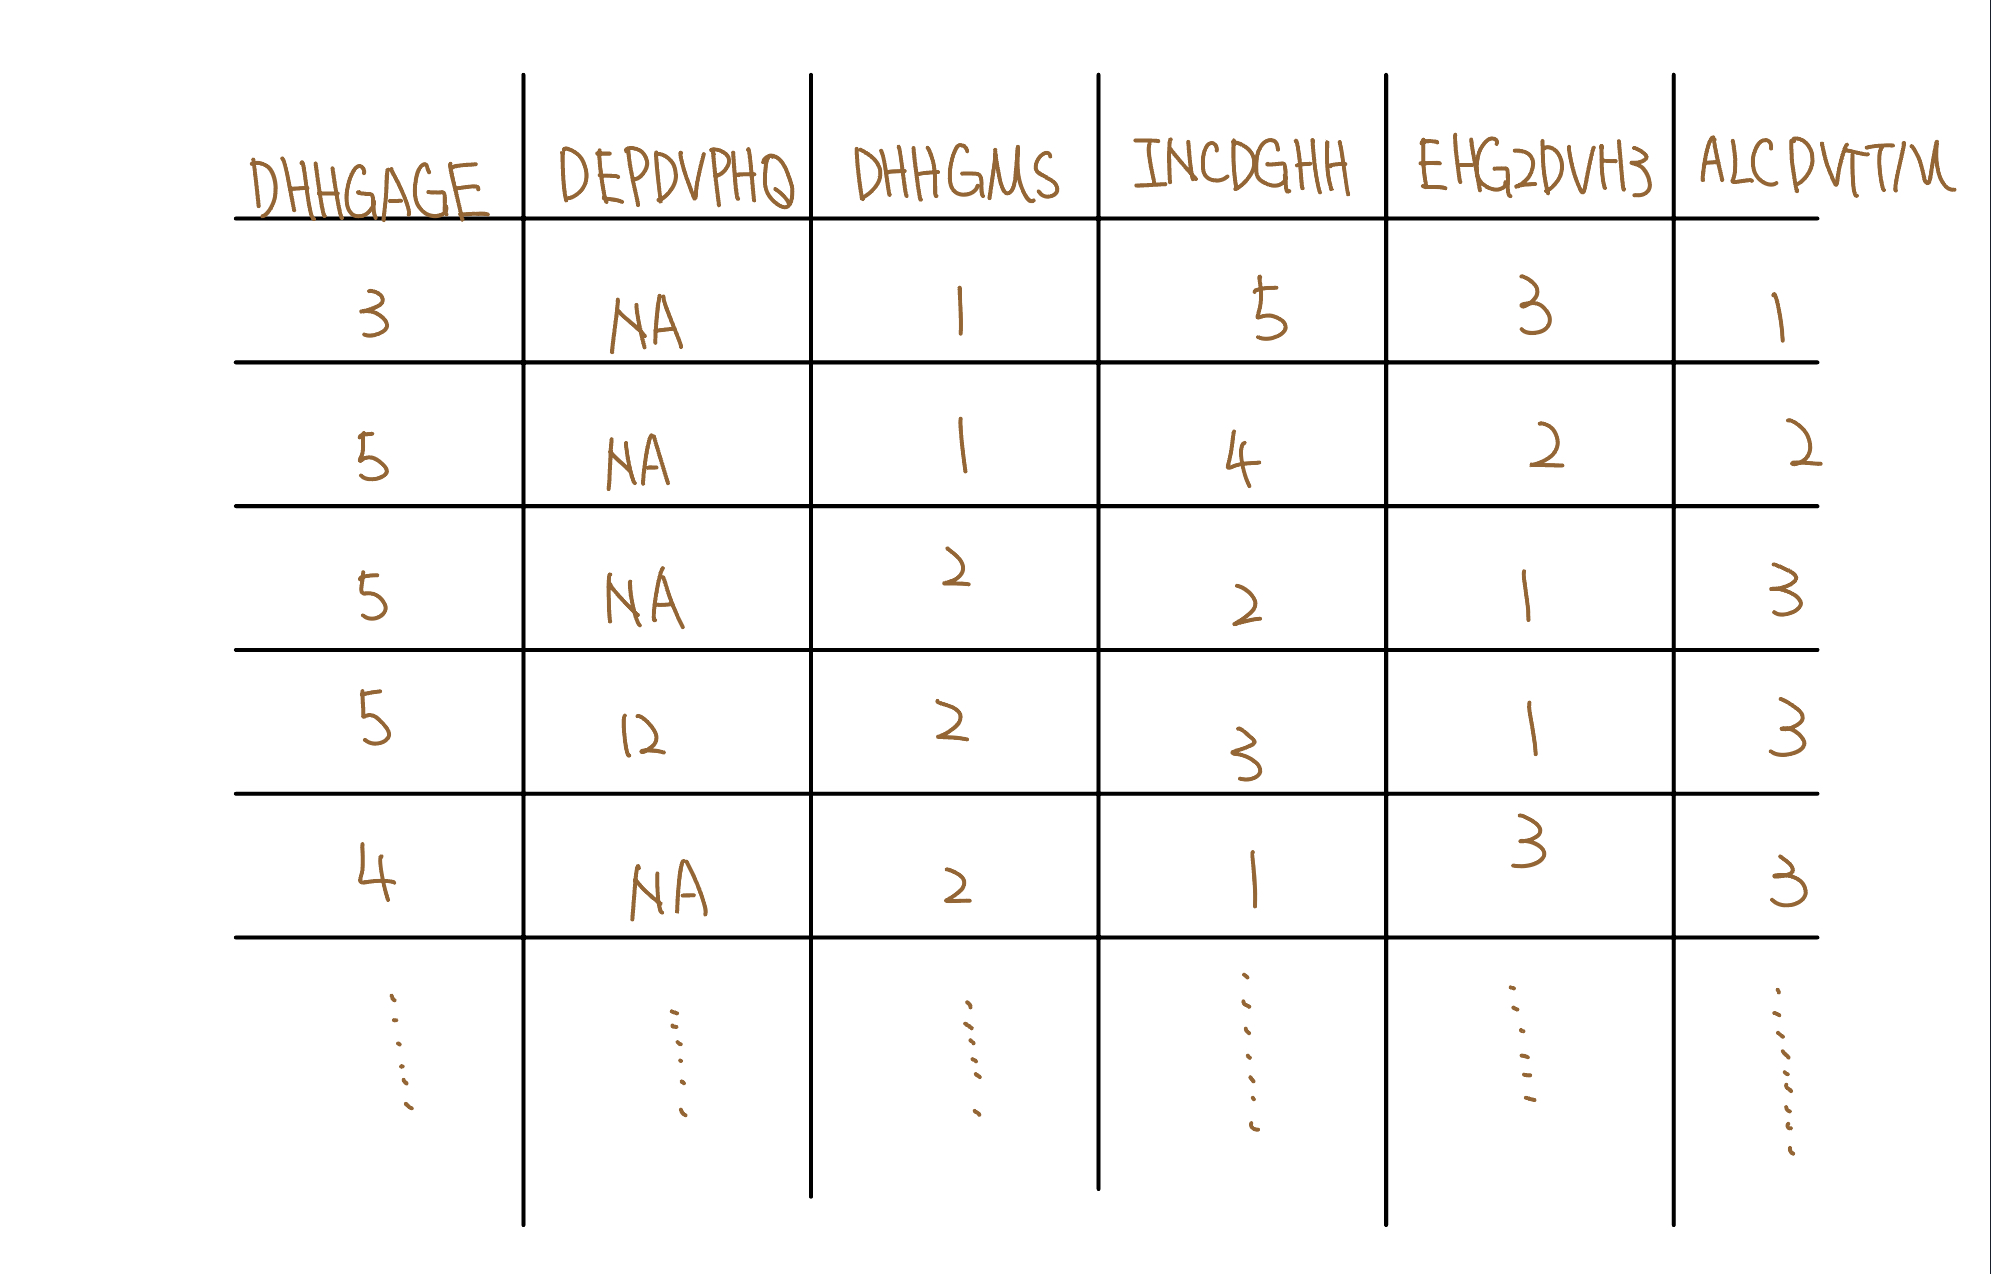 DHHGAGE DEPDVPHQ DHHGMS INCDGHH EHG2DVH3 ALCDVTTM
3 NA 1 5 3 1
5 NA 1 4 2 2
5 NA 2 2 1 3
5 12 2 3 1 3
4 NA 2 1 3 3